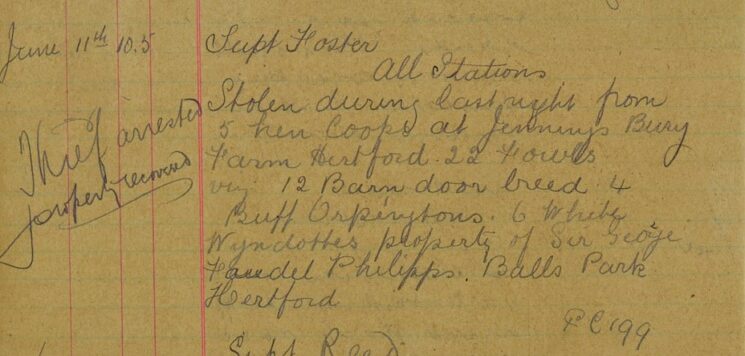 June 11th 10.5
Supt Foster
All Stations
Stolen during last night from
5 hen Coops at Jennings Bury
Farm Hertford. 22 Fowls
viz 12 Barn door breed. 4
Buff Orpingtons. 6 White
Wyndottes property of Sir George
Faudel Philipps. Balls Park
Hertford
PC 199
Thief arrested
property recovered
Supt Reed